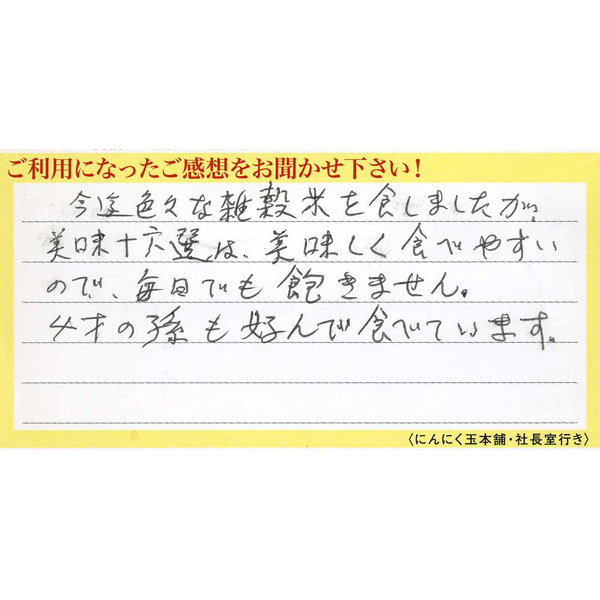 ご利用になったご感想をお聞かせ下さい！
今迄色々な雑穀米を食しましたが、
美味十六選は、美味しく食べやすい
ので、毎日でも飽きません。
4才の孫も好んで食べています。
〈にんにく玉本舗・社長室行き〉